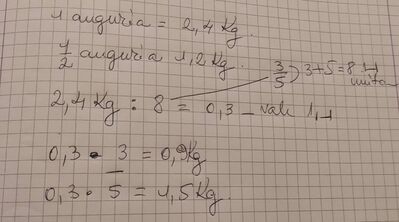 1 anguria = 2,4 Kg.
1/2 anguria 1,2 Kg.
3/5 ) 3+5 = 8 unità
2,4 Kg : 8 = 0,3 vale 1
0,3 · 3 = 0,9 Kg
0,3 · 5 = 1,5 Kg.